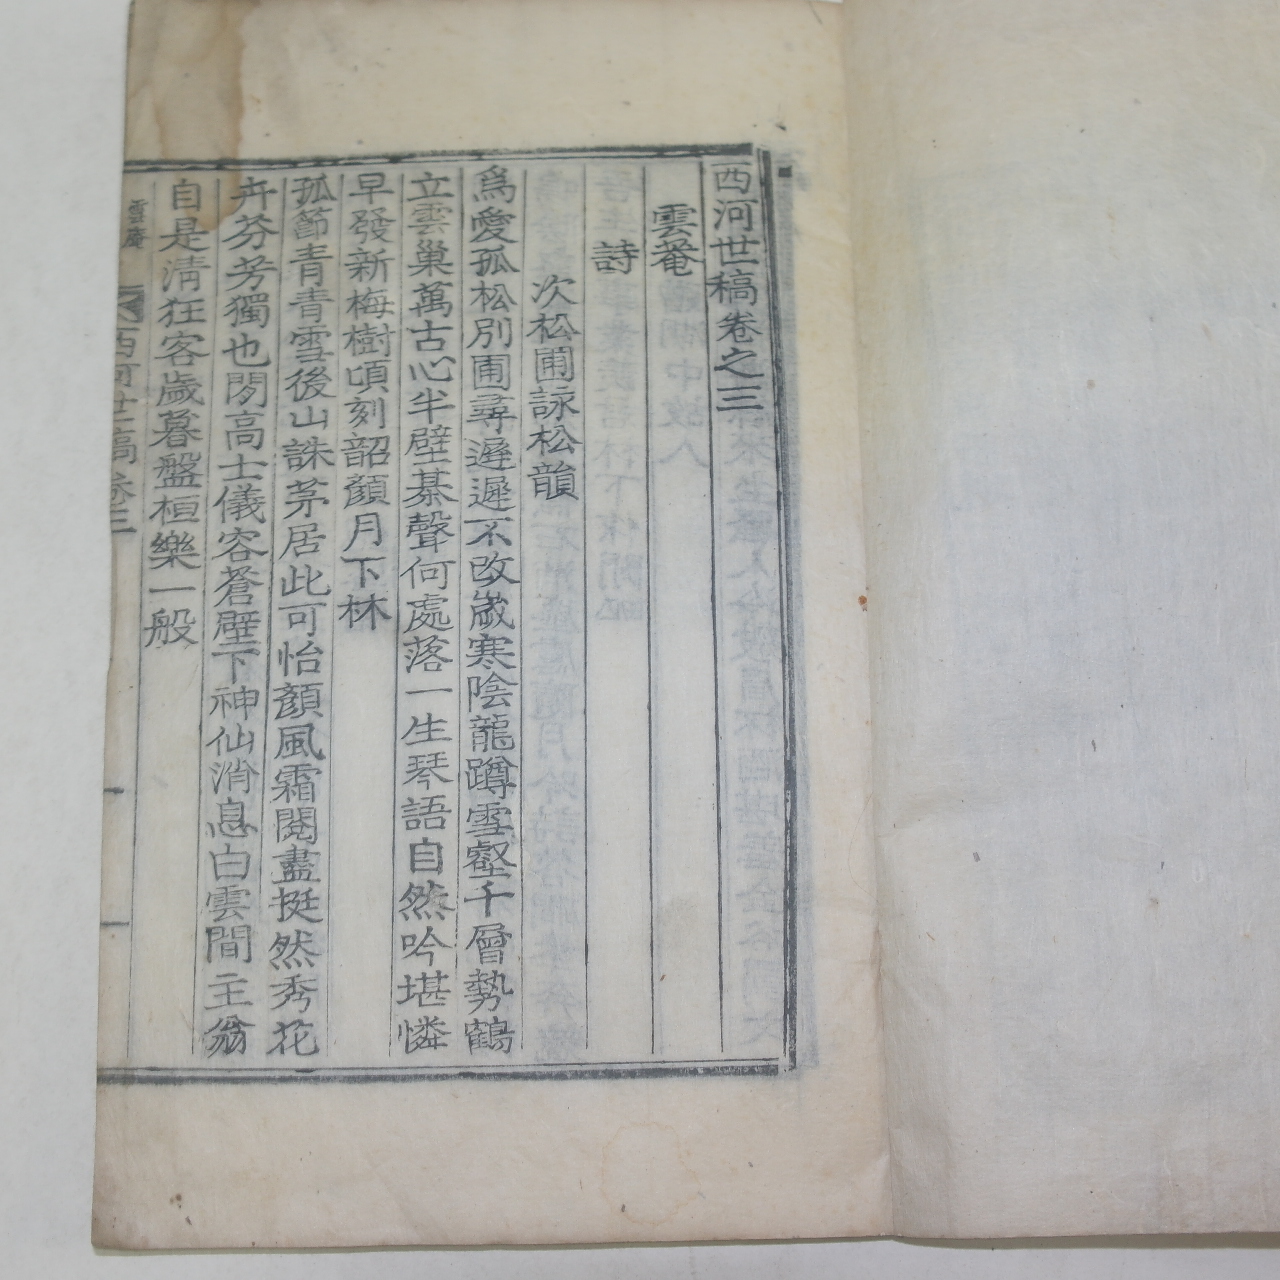 西河世稿卷之三
雲菴
詩
次松圃詠松韻
爲愛孤松別圃尋遲遲不改歲寒陰龍蹲雪壑千層勢鶴
立雲巢萬古心半壁棊聲何處落一生琴語自然吟堪憐
早發新梅樹頃刻韶顏月下林
孤節靑靑雪後山誅茅居此可怡顏風霜閱盡挺然秀花
卉芬芳獨也閒高士儀容蒼壁下神仙消息白雲間主翁
自是淸狂客歲暮盤桓樂一般
雲菴
西河世稿卷三